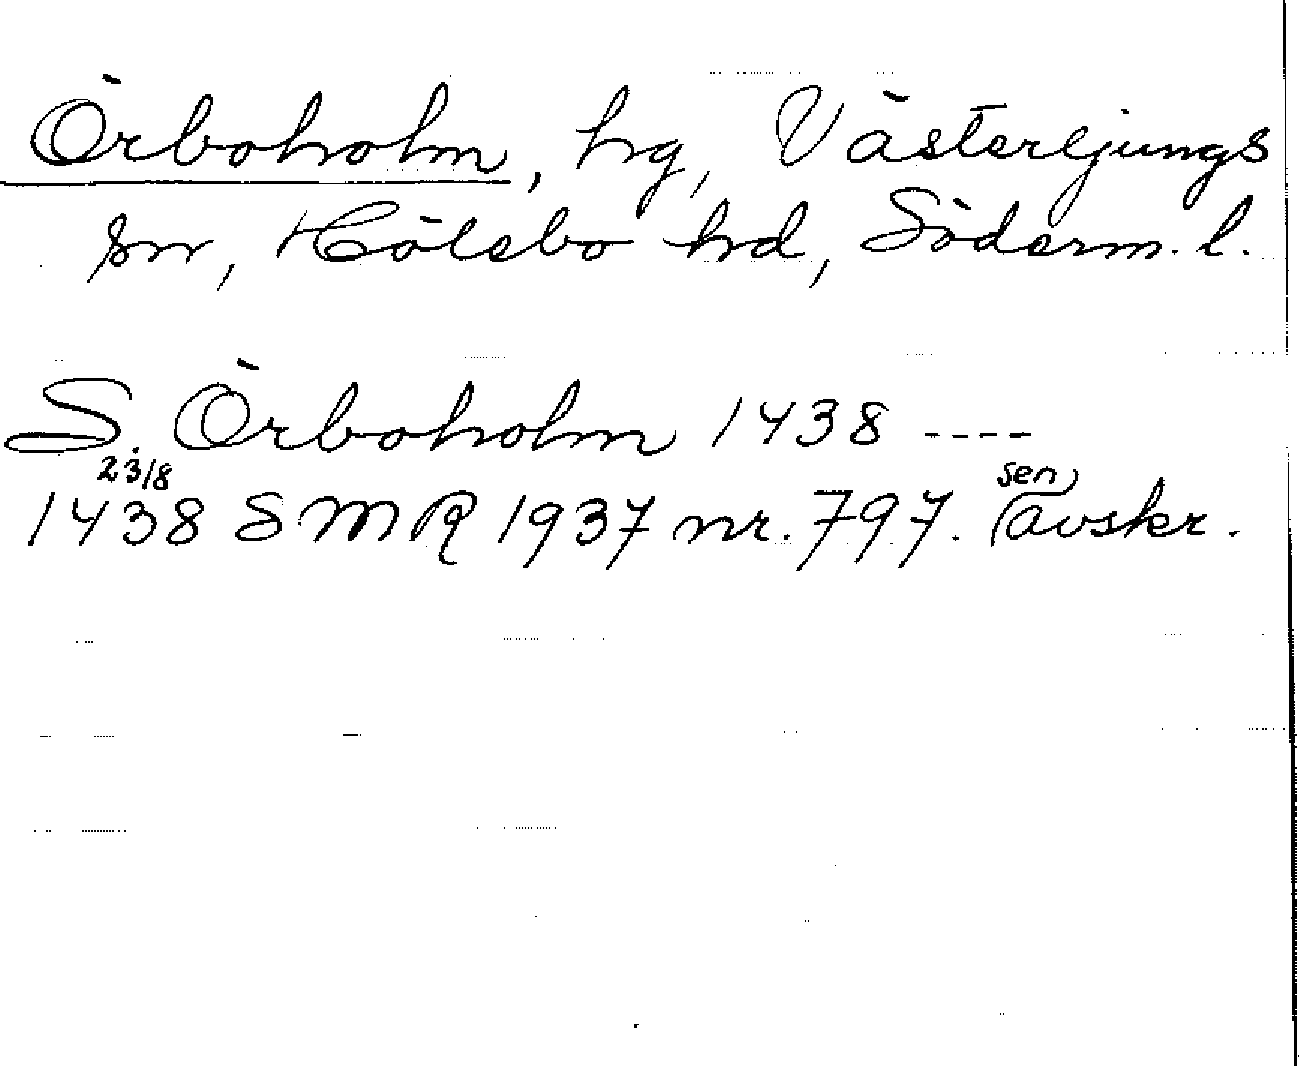 Örboholm, hg, Västerljungs
sn, Hölebo hd, Söderm. l.
S. Örboholm 1438 ----
23/8 sen
1438 SMR 1937 nr. 797. avskr.